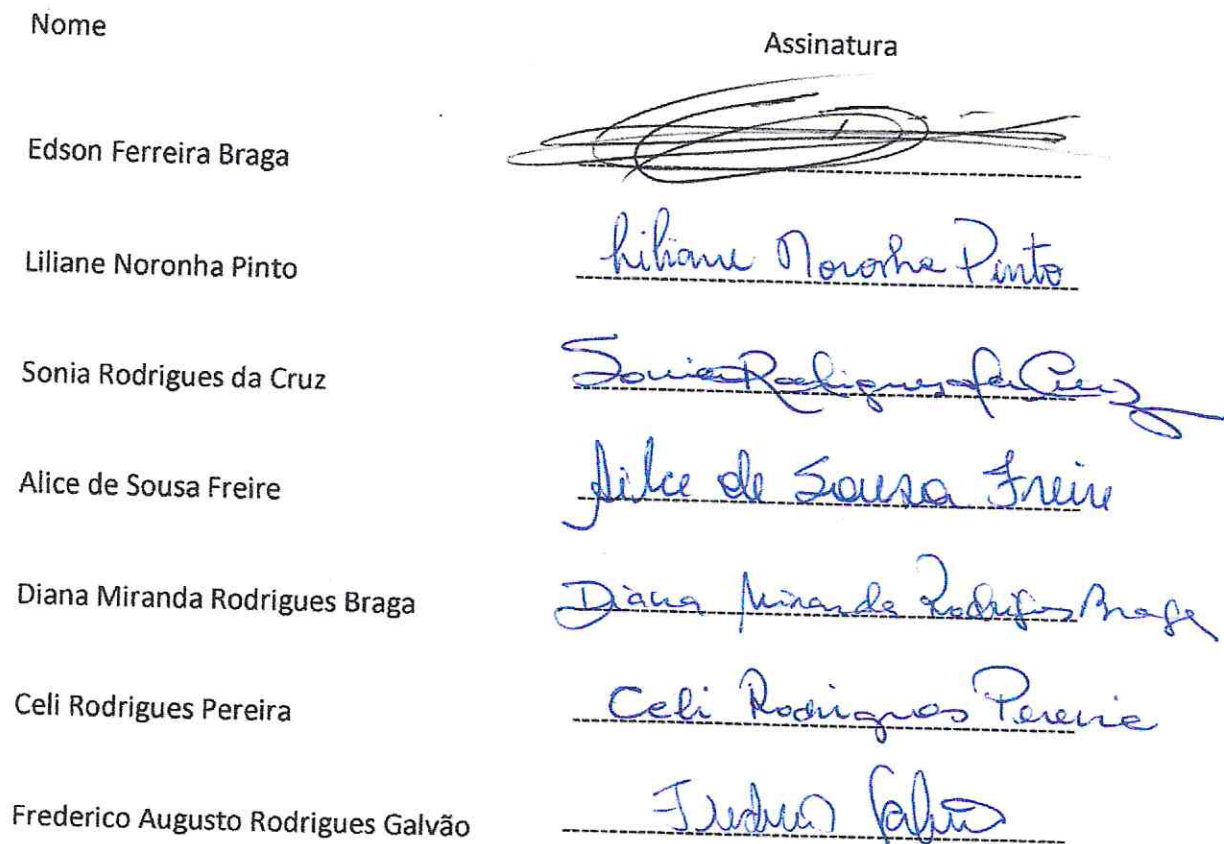 Nome Assinatura
Edson Ferreira Braga
Liliane Noronha Pinto Liliane Noronha Pinto
Sonia Rodrigues da Cruz Sonia Rodrigues da Cruz
Alice de Sousa Freire Ailce de Sousa Freire
Diana Miranda Rodrigues Braga Diana Miranda Rodrigues Braga
Celi Rodrigues Pereira Celi Rodrigues Pereira
Frederico Augusto Rodrigues Galvão Galvão